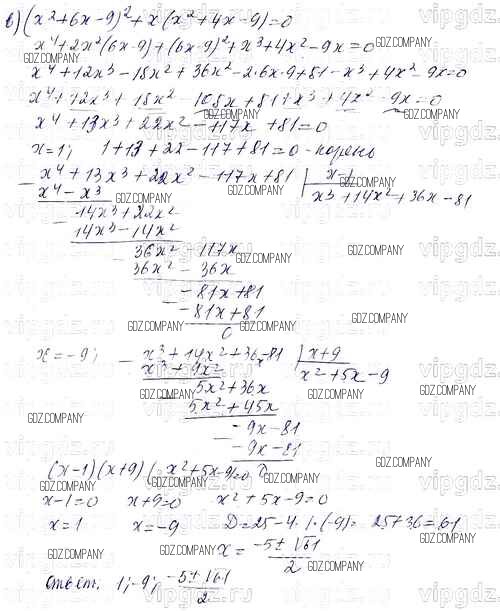 в) (x²+6x-9)²+x(x²+4x-9)=0
x⁴+2x²(6x-9)+(6x-9)²+x³+4x²-9x=0
x⁴+12x³-18x²+36x²-2·6x·9+81-x³+4x²-9x=0
x⁴+12x³+18x²-108x+81+x³+4x²-9x=0
x⁴+13x³+22x²-117x+81=0
x=1; 1+13+22-117+81=0 - корень
- x⁴+13x³+22x²-117x+81 | x-1
x⁴-x³ x³+14x²+36x-81
- 14x³+22x²
14x³-14x²
- 36x²-117x
36x²-36x
- -81x+81
-81x+81
0
x=-9; - x³+14x²+36x-81 | x+9
x³+9x² x²+5x-9
- 5x²+36x
5x²+45x
- -9x-81
-9x-81
(x-1)(x+9)(x²+5x-9)=0
x-1=0 x+9=0 x²+5x-9=0
x=1 x=-9 D=25-4·1·(-9)=25+36=61
x= -5±√61
2
Ответ. 1;-9; -5±√61
2
GDZ.COMPANY
vipgdz.ru